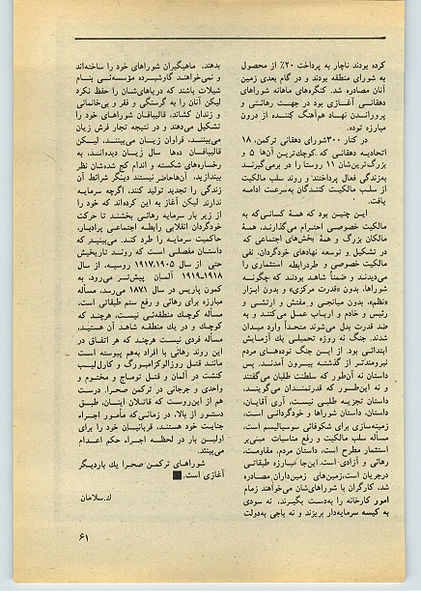 کرده بودند ناچار به پرداخت ۲۰٪ از محصول
به شورای منطقه بودند و در گام بعدی زمین
آنان مصادره شد. کنگره‌های ماهانه شوراهای
دهقانی آغازی بود در جهت رهائی و
پروراندن نهاد هم‌آهنگ کننده از درون
مبارزه توده.
در کنار ۳۰۰ شورای دهقانی ترکمن، ۱۸
اتحادیه دهقانی که کوچک‌ترین آن‌ها ۵ و
بزرگ‌ترین‌شان ۱۱ روستا را در برمی‌گیرند
به‌زندگی فعال پرداختند و روند سلب مالکیت
از سلب مالکیت کنندگان به‌سرعت ادامه
یافت.
این چنین بود که همهٔ کسانی‌که به
مالکیت خصوصی احترام می‌گذارند، همهٔ
مالکان بزرگ و همهٔ بخش‌های اجتماعی که
در تشکیل و توسعه نهادهای خودگردان، نفی
مالکیت خصوصی و طرد رابطه استثماری را
می‌دیدند و ضمناً شاهد بودند که چگونه
شوراها، بدون «قدرت مرکزی» و بدون ابزار
«نظم»، بدون میانجی و مفتش و ارتشی و
رئیس و خادم و ارباب عمل می‌کنند و به
ضد قدرت بدل می‌شوند متحداً وارد میدان
شدند. جنگ نه روزه تحمیلی یک آزمایش
ابتدائی بود. از این جنگ توده‌های مردم
نیرومندتر از گذشته بیرون آمدند. پس
داستان نه آن‌طور که سلطنت طلبان می‌گفتند
و نه این‌طور که قدرتمندان می‌گویند،
داستان تجزیه طلبی نیست، آری آقایان،
داستان، داستان شوراها و خودگردانی است،
زمینه‌سازی برای شکوفائی سوسیالیسم است،
مسأله سلب مالکیت و رفع مناسبات مبنی‌بر
استثمار مطرح است، داستان مردم، مقاومت،
رهائی و آزادی است. این‌جا مبارزه طبقاتی
درجریان است، زمین‌های زمین‌داران مصادره
شد، کارگران با شوراهای‌شان می‌خواهند زمام
امور کارخانه را به‌دست بگیرند، نه سودی
به کیسه سرمایه‌دار بریزند و نه باجی به‌دولت
بدهند. ماهیگیران شوراهای خود را ساخته‌اند
و نمی‌خواهند گاوشیرده مؤسسه‌ئی بنام
شیلات باشند که دریاهای‌شان را حفظ نکرد
لیکن آنان را به گرسنگی و فقر و بی‌خانمانی
و زندان کشاند، قالیبافان شوراهای خود را
تشکیل می‌دهند و در نتیجه تجار فرش زیان
می‌بینند، فراوان زیان می‌بینند، لیکن
قالیبافان ده‌ها سال زیان دیده‌اند، به
رخساره‌های شکسته و اندام کج شده‌شان نظر
بیندازید، آن‌ها حاضر نیستند دیگر شرائط آن
زندگی را تجدید تولید کنند، اگرچه سرمایه
ندارند لیکن آغاز به این کرده‌اند که خود را
از زیر بار سرمایه رهائی بخشند تا حرکت
خودگردان انقلابی رابطه اجتماعی
حاکمیت سرمایه را طرد کند. می‌بینید که
داستان مفصلی است که روند تاریخیش
حتی از سال ۱۹۰۵ و ۱۹۱۷ روسیه، از سال
۱۹۱۸-۱۹۱۹ آلمان پیش‌تر می‌رود، به
کمون پاریس در سال ۱۸۷۱ می‌رسد، مسأله
مبارزه برای رهائی و رفع ستم طبقاتی است،
مسأله کوچک منطقه‌ئی نیست، هرچند که
کوچک و در یک منطقه شاهد آن هستید،
مسأله فردی نیست هرچند که هر اتفاق در
این روند رهائی با افراد به‌هم پیوسته است
مانند قتل روزالوکزامبورگ و کارل‌لیب
کنشت در آلمان و قتل توماج و مختوم و
واحدی و جرجانی در ترکمن صحرا. درست
هم از این‌روست که قاتلان اینان، طبق
دستور از بالا، در زمانی‌که مأمور اجراء
جنایت خود هستند، قربانیان خود را برای
اولین بار در لحظه اجراء حکم اعدام
می‌بینند.
شوراهای ترکمن صحرا یک باردیگر
آغازی است.
ک.سلامان
۶۱